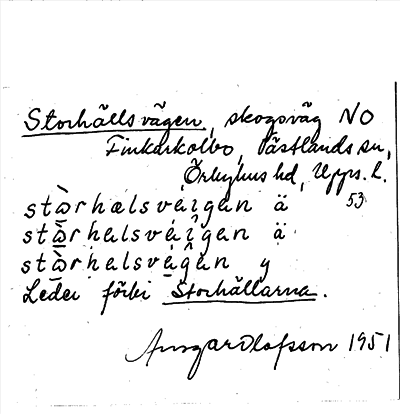 Storhällsvägen, skogsväg NO
Finkarkolbo, Västlands sn,
Örbyhus hd, Upps. l.
stɷ̀rhælsvéi̯gen ä 53
stɷ̀rhelsvéi̯gen ä
stɷ̀rhelsvégen y
Leder förbi Storhällarna.
Ansgar Olofsson 1951